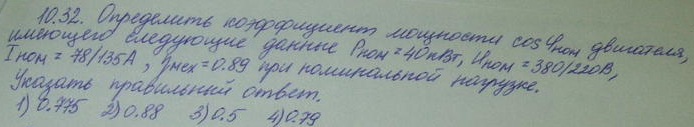 10.32. Определить коэффициент мощности cos φном двигателя,
имеющего следующие данные Pном = 40 кВт, Uном = 380/220В,
Iном = 78/135А, ηмех = 0.89 при номинальной нагрузке.
Указать правильный ответ.
1) 0.775 2) 0.88 3) 0.5 4) 0.79